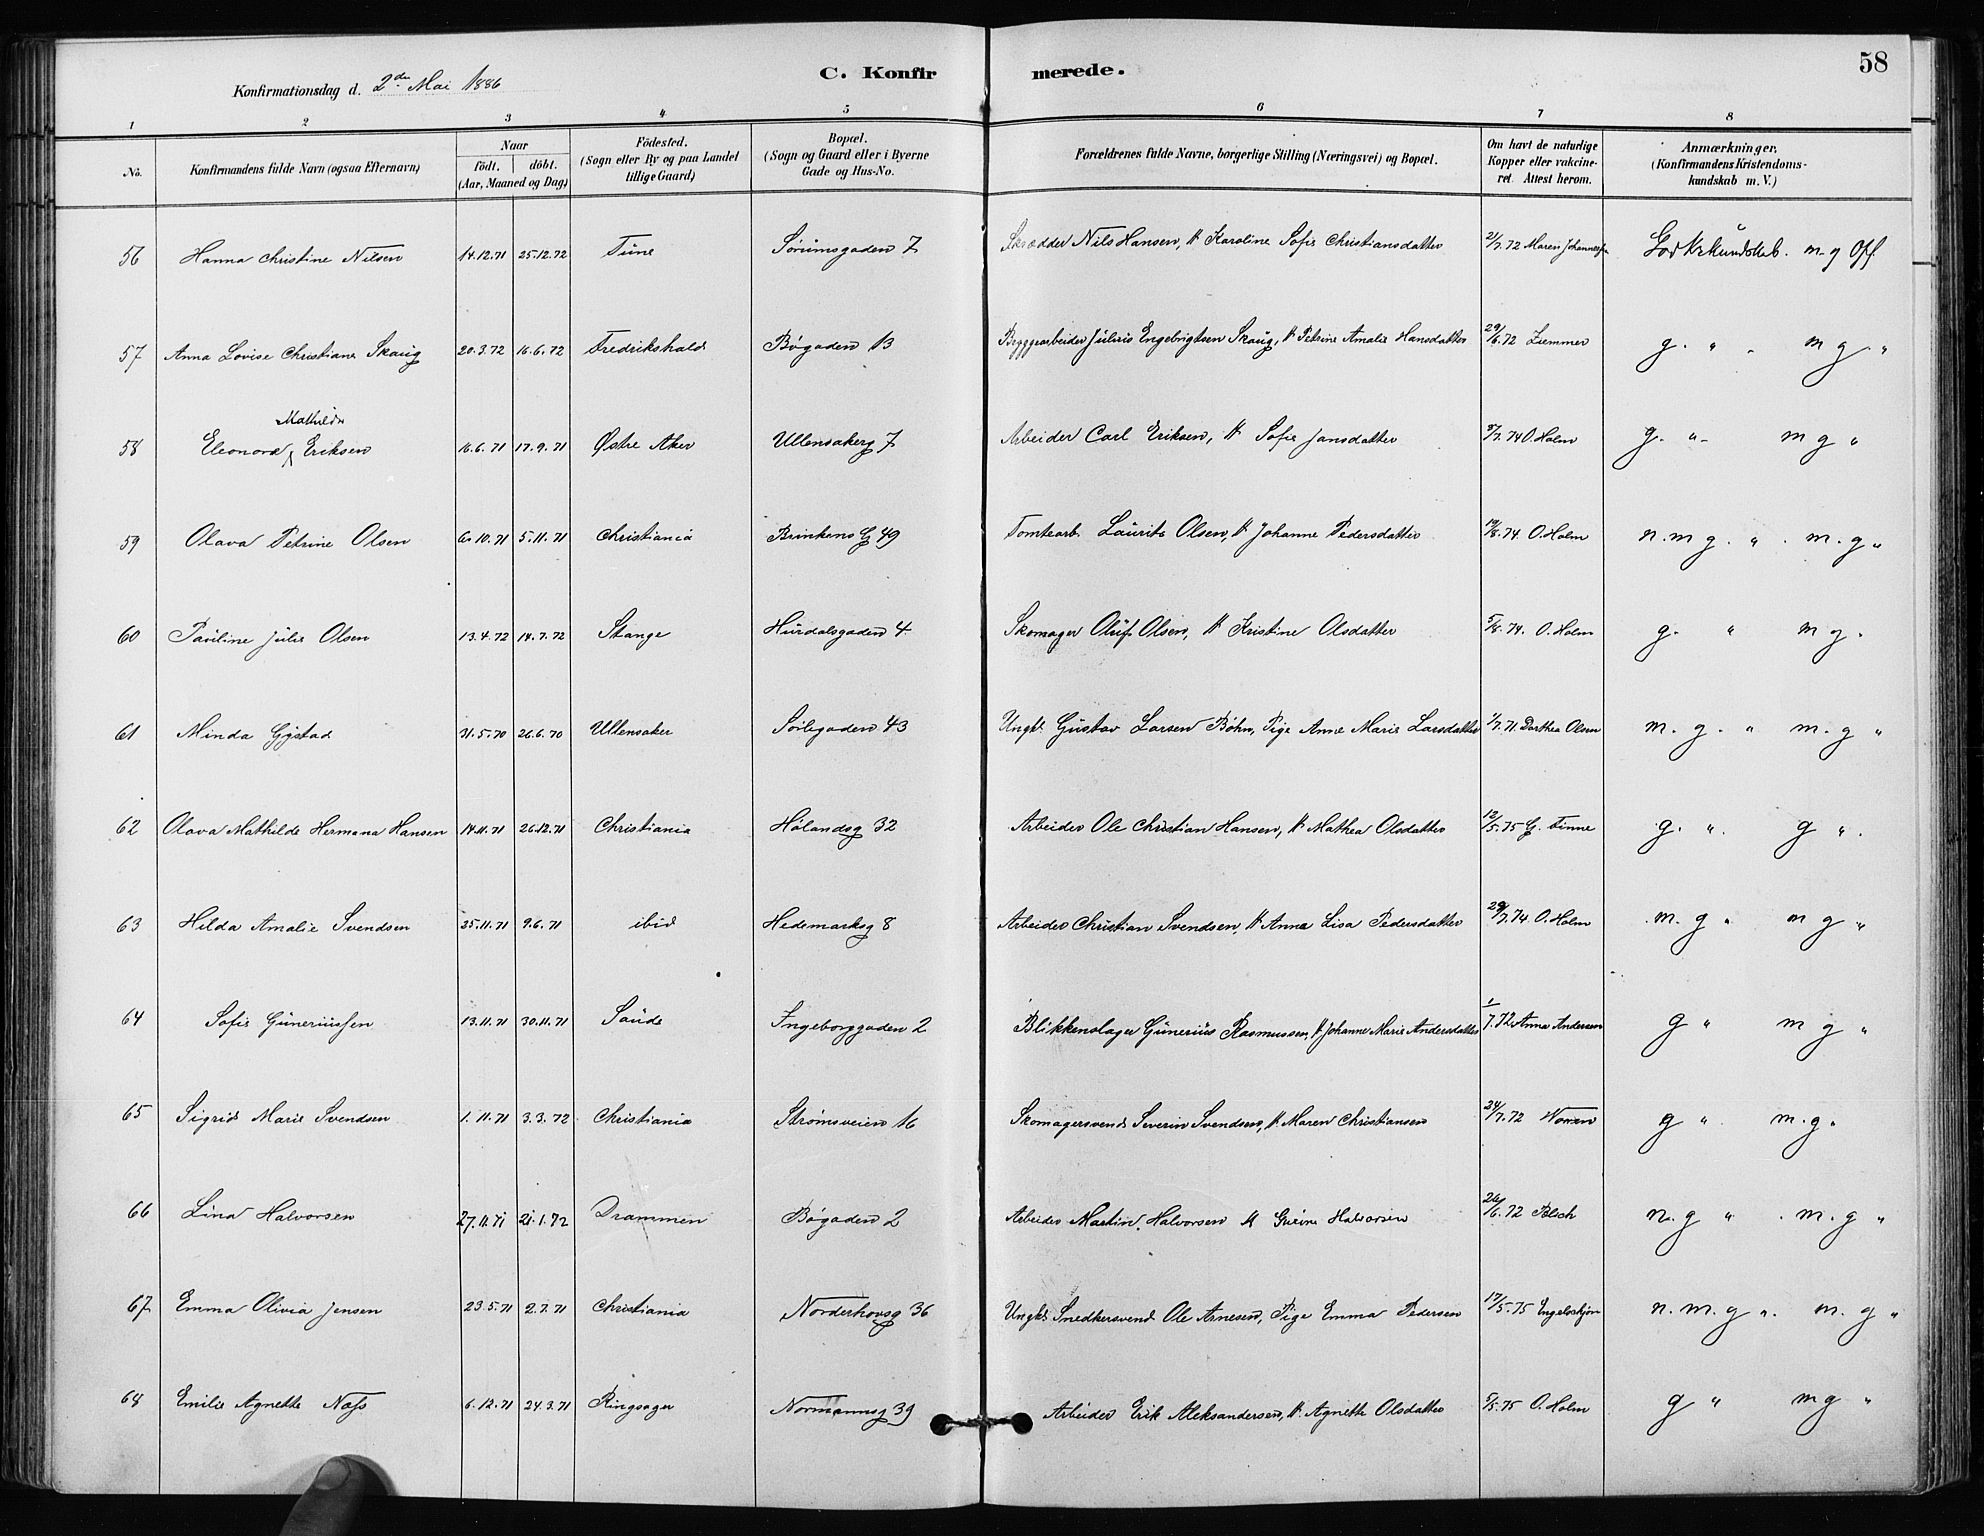 58
Konfirmationsdag d. 2den Mai 1886 C. Konfirmerede.
1 2 3 4 5 6 7 8
No. Konfirmandens fulde Navn (ogsaa Efternavn) Naar født. døbt. (Aar, Maaned og Dag) Fødested. (Sogn eller By og paa Landet tillige Gaard) Bopæl. (Sogn og Gaard eller i Byerne Gade og Hus-No. Forældrenes fulde Navne, borgerlige Stilling (Næringsvei) og Bopæl. Om havt de naturlige Kopper eller vakcineret. Attest herom. Anmærkninger. (Konfirmandens Kristendomskundskab m. V.)
56 Hanna Christine Nilsen 14.12.71 25.12.72 Tune Sørumsgaden 7 Skrædder Nils Hansen, H Karoline Sofie Christiansdatter 21/7.72 Maren God Krkundskab. m-g Off.
57 Anna Lovise Christiane Skaug 20.3.72 16.6.72 Fredrikshald Bøgaden 13 Bryggearbeider Julius Engebrigtsen Skaug, H Petrine Amalie Hansdatter 29/6.72 Ziemmer g. " - m g. "
58 Eleonora Mathilde Eriksen 16.6.71 17.9.71 Østre Aker Ullensakerg 7 Arbeider Carl Eriksen, H Sofie Jansdatter 3/7.74 O. Holm g. " - m g "
59 Olava Petrine Olsen 6.10.71 5.11.71 Christiania Brinkens G 49 Tomtearb. Laurits Olsen, H Johanne Pedersdatter 19/8.74 O. Holm n.m g. " . m.g "
60 Pauline Julie Olsen 13.4.72 14.7.72 Stange Hurdalsgaden 4 Skomager Oluf Olsen, H Kristine Olsdatter 5/8.74. O. Holm g. " m g.
61 Minda Gystad 31.5.70 26.6.70 Ullensaker Sørligaden 43 Ungk. Gustav Larsen Bøhn, Pige Anne Marie Larsdatter 1/7.71. Dorthea Olsen m. g. " m. g "
62 Olava Mathilde Hermana Hansen 14.11.71 26.12.71 Christiania Hølandsg 32 Arbeider Ole Christian Hansen, H Mathea Olsdatter 12/5.75 G. Finne g. ". g ".
63 Hilda Amalie Svendsen 25.11.71 9.6.71 ibid Hedemarksg 8 Arbeider Christian Svendsen, H Anna Lisa Pedersdatter 29/7.74 O. Holm m. g " m g "
64 Sofie Guneriussen 13.11.71 30.11.71 Saude Ingeborggaden 2 Blikkenslager Gunerius Rasmussen, H Johanne Marie Andersdatter 1/7.72 Anna Andersen g " m g "
65 Sigrid Marie Svendsen 1.11.71 3.3.72 Christiania Strømsveien 16 Skomagersvend Severin Svendsen, H Maren Christiansen 24/7.72 g " m.g "
66 Lina Halvorsen 27.11.71 21.1.72 Drammen Bøgaden 2 Arbeider Martin Halvorsen H Halvorsen 26/6.72 n. g " . m. g "
67 Emma Olivia Jensen 23.5.71 2.7.71 Christiania Norderhovsg 36 Ungk. Snedkersvend Ole Arnesen, Pige Emma Pedersen 17/5.75 n. m. g ". m. g "
68 Emilie Agnette Næss 6.12.71 24.3.71 Ringsager Normannsg 39 Arbeider Erik Aleksandersen, H. Agnette Olsdatter 5/5.75 O. Holm g " m g "